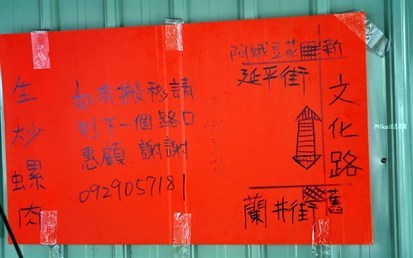 生炒螺肉
如有搬移請
到下一個路口
惠顧.謝謝
0929057181
阿娥豆花 新
延平街
文化路
蘭井街 舊